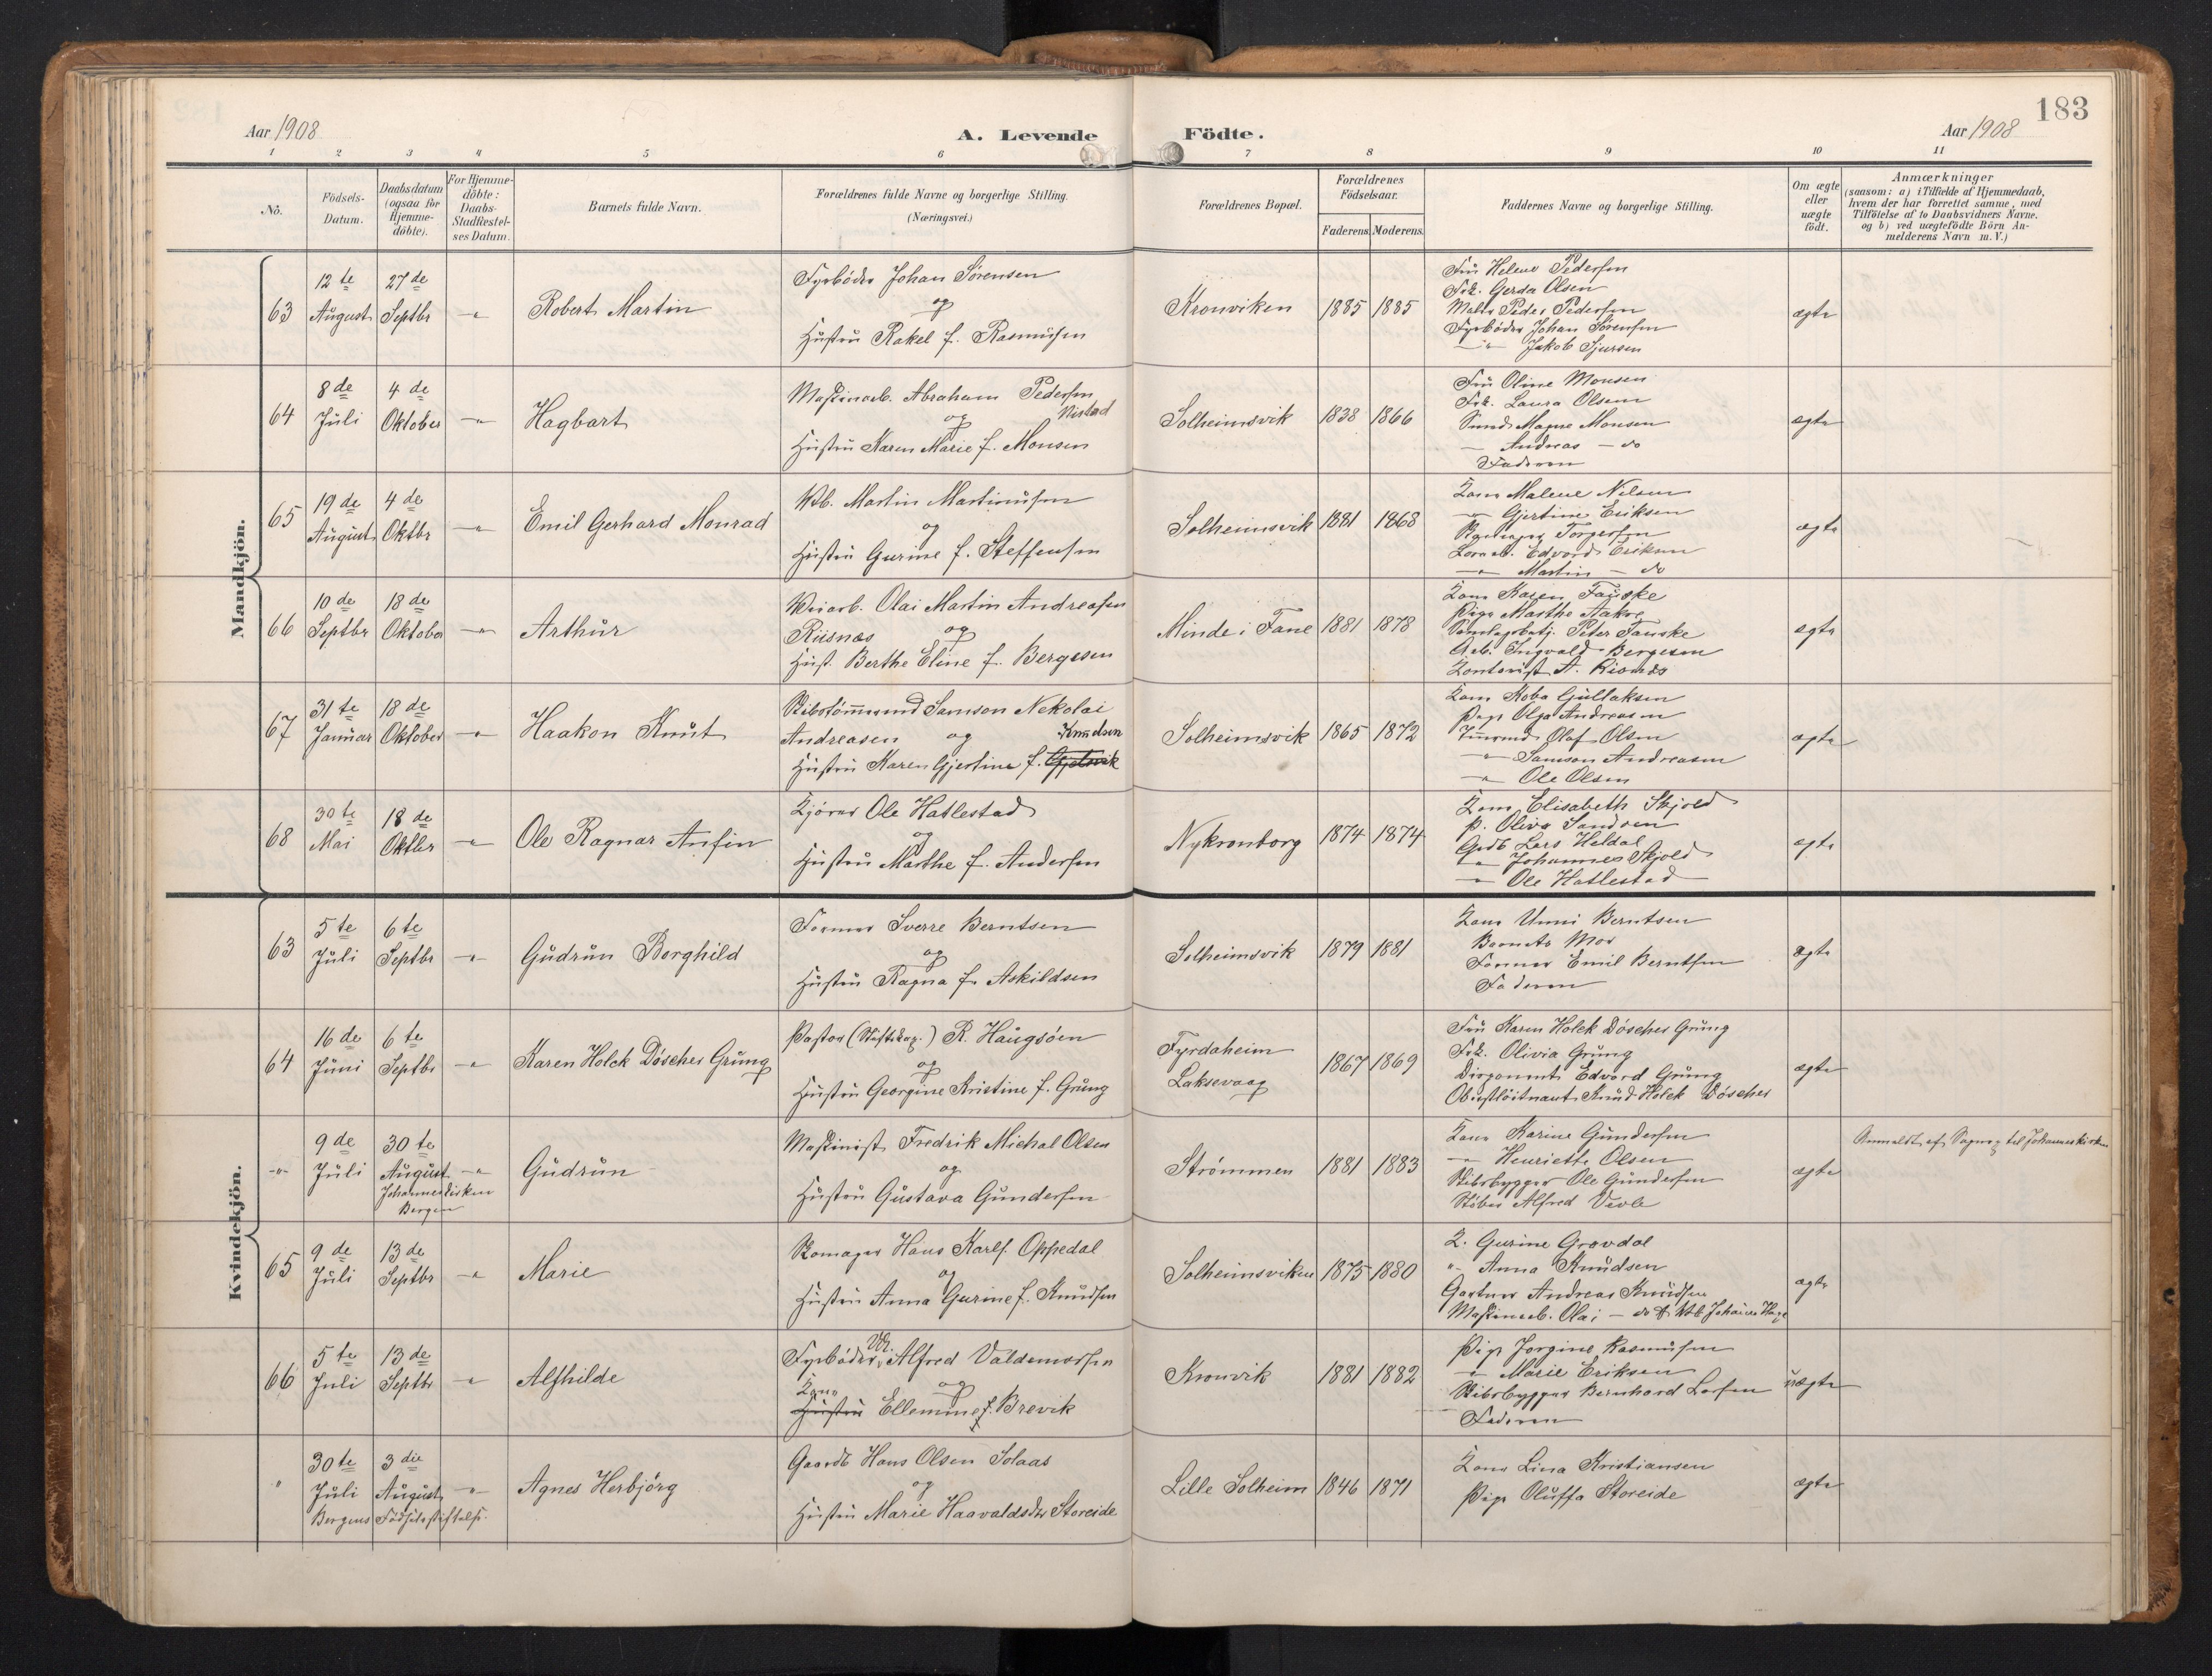 183
Aar 1908
A. Levende
Födte.
Aar 1908
1 2 3 4 5 6 7 8 9 10 11
No.
Födsels-
Datum.
Daabsdatum
(ogsaa for
Hjemme-
döbte).
For Hjemme-
döbte:
Daabs-
Stadfestel-
ses Datum.
Barnets fulde Navn.
Forældrenes fulde Navne og borgerlige Stilling.
(Næringsvei.)
Forældrenes Bopæl.
Forældrenes
Födselsaar.
Faderens. Moderens.
Faddernes Navne og borgerlige Stilling.
Om ægte
eller
uægte
födt.
Anmærkninger
(saasom: a) i Tilfælde af Hjemmedaab,
hvem der har forrettet samme, med
Tilföielse af to Daabsvidners Navne.
og b) ved uægtefödte Börn An-
melderens Navn m.V.)
Mandkjön.
63
12te
August
27de
Septbr
Robert Martin
Fyrbøder Johan Sørensen
og
Hustru Rakel f. Rasmussen
Kronviken
1885 1885
Fru Helene Pedersen
Frk. Gerda Olsen
Maler Peder Pedersen
Fyrbøder Johan Sørensen
-"- Jakob Sjursen
ægte
64
8de
Juli
4de
Oktober
Hagbart
Maskinarb. Abraham Pedersen
og Nistad
Hustru Karen Marie f. Monsen
Solheimsvik
1838 1866
Fru Oline Monsen
Frk. Laura Olsen
Magne Monsen
Andreas - do
Faderen
ægte
65
19de
August
4de
Oktbr
Emil Gerhard Monrad
Martin Martinussen
og
Hustru Gurine f. Steffensen
Solheimsvik
1881 1868
Kone Malene Nilsen
-"- Gjertine Eriksen
Torgersen
Edvard Eriksen
-"- Martin - do
ægte
66
10de
Septbr
18de
Oktober
Arthur
Veiarb. Olai Martin Andreassen
Risnæs og
Hust. Berthe Eline f. Bergesen
Minde i Fane
1881 1878
Kone Karen Fauske
Pige Marthe Aakre
Peter Fauske
Arb. Ingvald Bergesen
Kontorist A. Risnæs
ægte
67
31te
Januar
18de
Oktober
Haakon Knut
Skibstømmermand Samson Nekolai
Andreasen og Knudsen
Hustru Karen Gjertine f. Gjelsvik
Solheimsvik
1865 1872
Kone Gullaksen
Pige Olga Andreasen
Tømmermd. Olaf Olsen
-"- Samson Andreasen
-"- Ole Olsen
ægte
68
30te
Mai
18de
Oktbr
Ole Ragnar Anfin
Kjører Ole Hatlestad
og
Hustru Marthe f. Andersen
Nykronborg
1874 1874
Kone Elisabeth Skjold
P. Oliva Sandsen
Gdb Lars Heldal
-"- Johannes Skjold
-"- Ole Hatlestad
ægte
Kvindekjön.
63
5te
Juli
6te
Septbr
Gudrun Borghild
Former Sverre Berntsen
og
Hustru Ragna f. Askildsen
Solheimsvik
1879 1881
Kone Unni Berntsen
Barnets Mor
Former Emil Berntsen
Faderen
Ægte
64
16de
Juni
6te
Septbr
Karen Holck Døscher Grung
Pastor (Stiftskap.) R. Haugsøen
og
Hustru Georgine Kristine f. Grung
Fyrdaheim
Laksevaag
1867 1869
Fru Karen Holck Døscher Grung
Frk. Olivia Grung
Disponent Edvard Grung
Oberstløitnant Knud Holck Døscher
ægte
-"-
9de
Juli
30te
August
Johanneskirken
Bergen
Gudrun
Maskinist Fredrik Michal Olsen
og
Hustru Gustava Gundersen
Strømmen
1881 1883
Kone Karine Gundersen
-"- Henriette Olsen
Skibsbygger Ole Gundersen
Støber Alfred
ægte
Anmeldt af Sognepr. til Johanneskirken
65
9de
Juli
13de
Septbr
Marie
Skomager Hans Karls. Oppedal
og
Hustru Anna Gurine f. Knudsen
Solheimsviken
1875 1880
K. Gurine Grovdal
"- Anna Knudsen
Gartner Andreas Knudsen
Maskinarb. Olai - do
ægte
66
5te
Juli
13de
Septbr
Alfhilde
Fyrbøder, Alfred Valdemarsen
Kone og
Hustru Ellemine f. Brevik
Kronvik
1881 1882
Pige Jorgine Rasmussen
-"- Marie Eriksen
Skibsbygger Bernhard Larsen
Faderen
uægte
"
30te
Juli
3die
August
Bergens Fødselsstiftelse.
Agnes Herbjörg
Gaardb Hans Olsen Solaas
og
Hustru Marie Haavaldsdtr Storeide
Lille Solheim
1846 1871
Kone Lina Kristiansen
Pige Oluffa Storeide
ægte